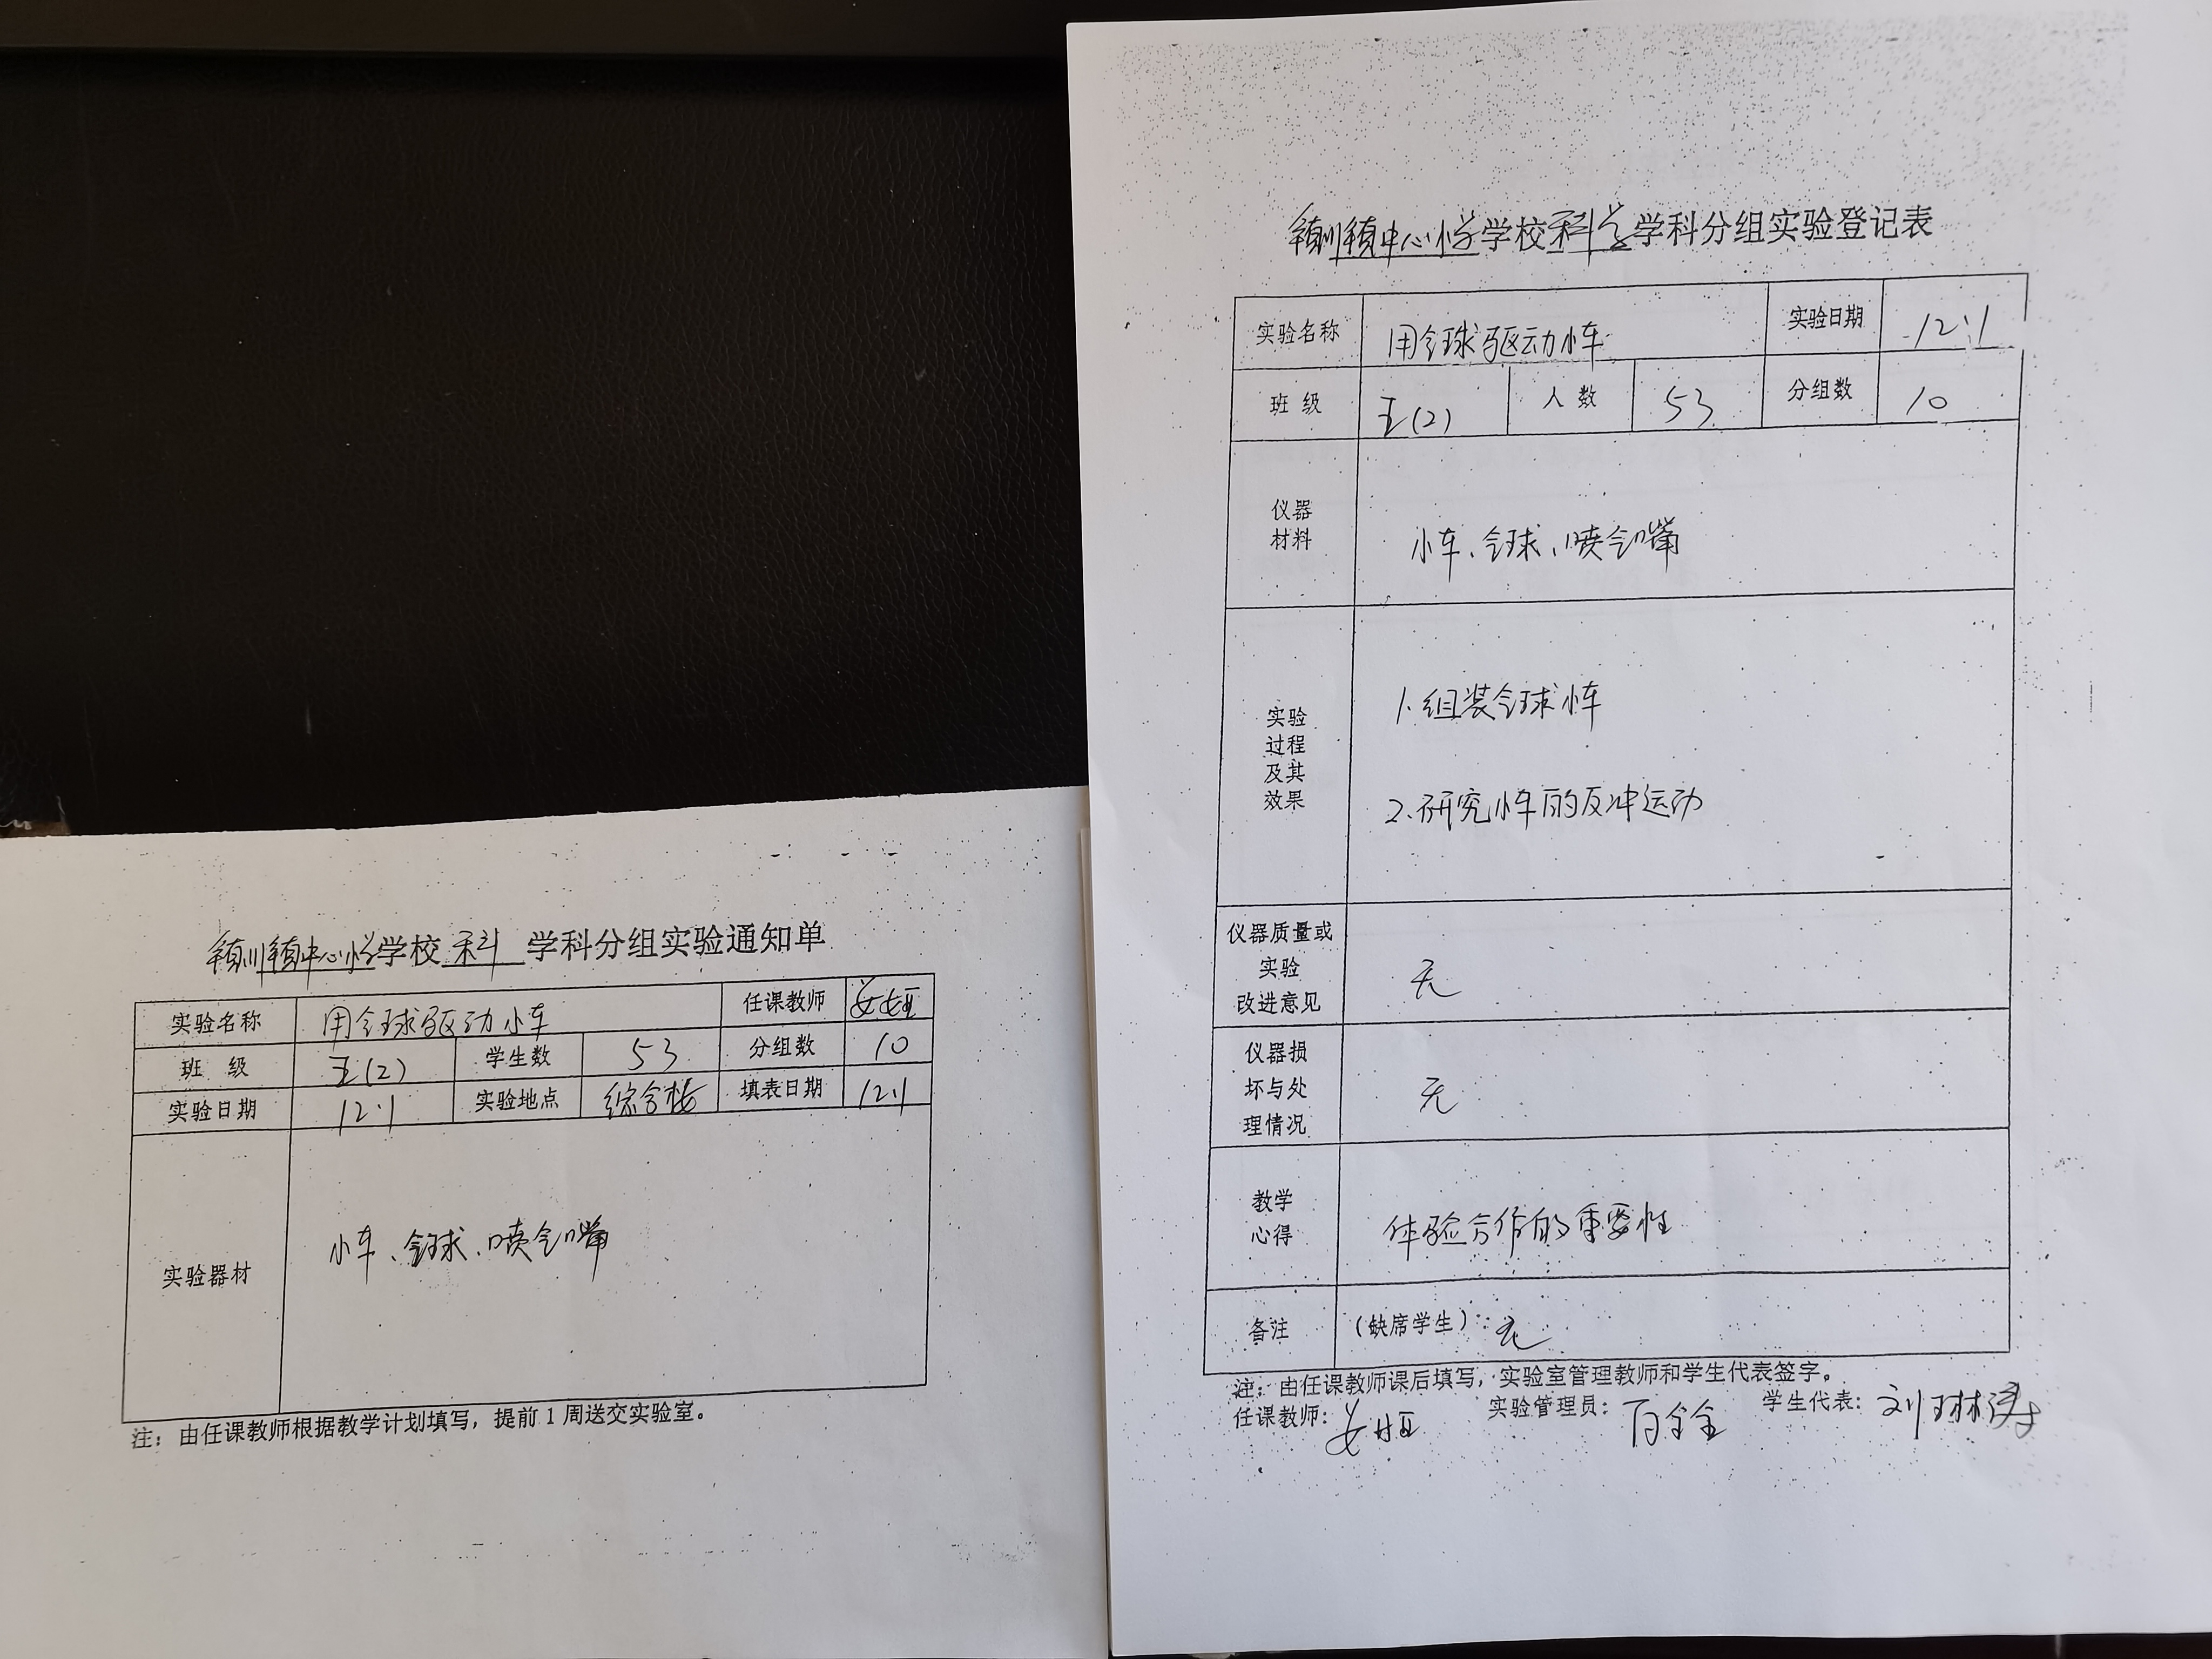 镇川镇中心小学学校 科 学科分组实验通知单
实验名称 用气球驱动小车 任课教师
班 级 五(2) 学生数 53 分组数 10
实验日期 12.1 实验地点 综合楼 填表日期 12.1
实验器材 小车、气球、喷气嘴
注：由任课教师根据教学计划填写，提前1周送交实验室。
镇川镇中心小学学校科学学科分组实验登记表
实验名称 用气球驱动小车 实验日期 12.1
班 级 五(2) 人 数 53 分组数 10
仪器
材料
小车、气球、喷气嘴
实验
过程
及其
效果
1.组装气球小车
2.研究小车的反冲运动
仪器质量或
实验
改进意见
无
仪器损
坏与处
理情况
无
教学
心得
体验合作的重要性
备注 （缺席学生）：无
注：由任课教师课后填写，实验室管理教师和学生代表签字。
任课教师: 实验管理员: 学生代表: 刘琳